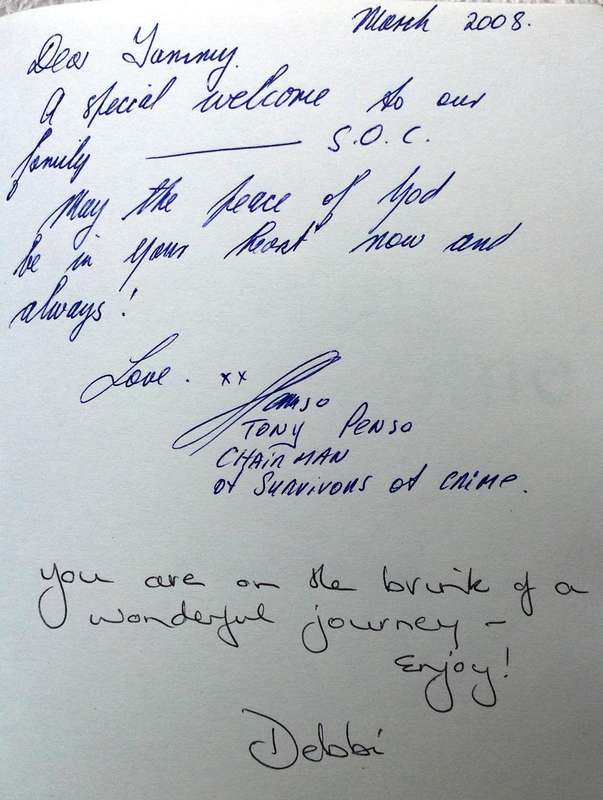 March 2008.
Dear Tammy.
A special welcome to our
family — S.O.C.
May the peace of God
be in your heart now and
always!
Love. xx
TONY PENSO
CHAIRMAN
of SURVIVORS of CRIME.
you are on the brink of a
wonderful journey –
Enjoy!
Debbi